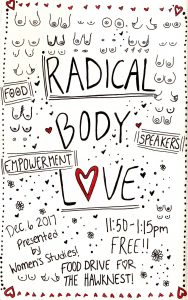 RADICAL
FOOD
BODY
SPEAKERS
EMPOWERMENT
LOVE
Dec. 6 2017
Presented
by
Women's Studies!
11:50-1:15pm
FREE!!
FOOD DRIVE FOR
THE HAWKNEST!